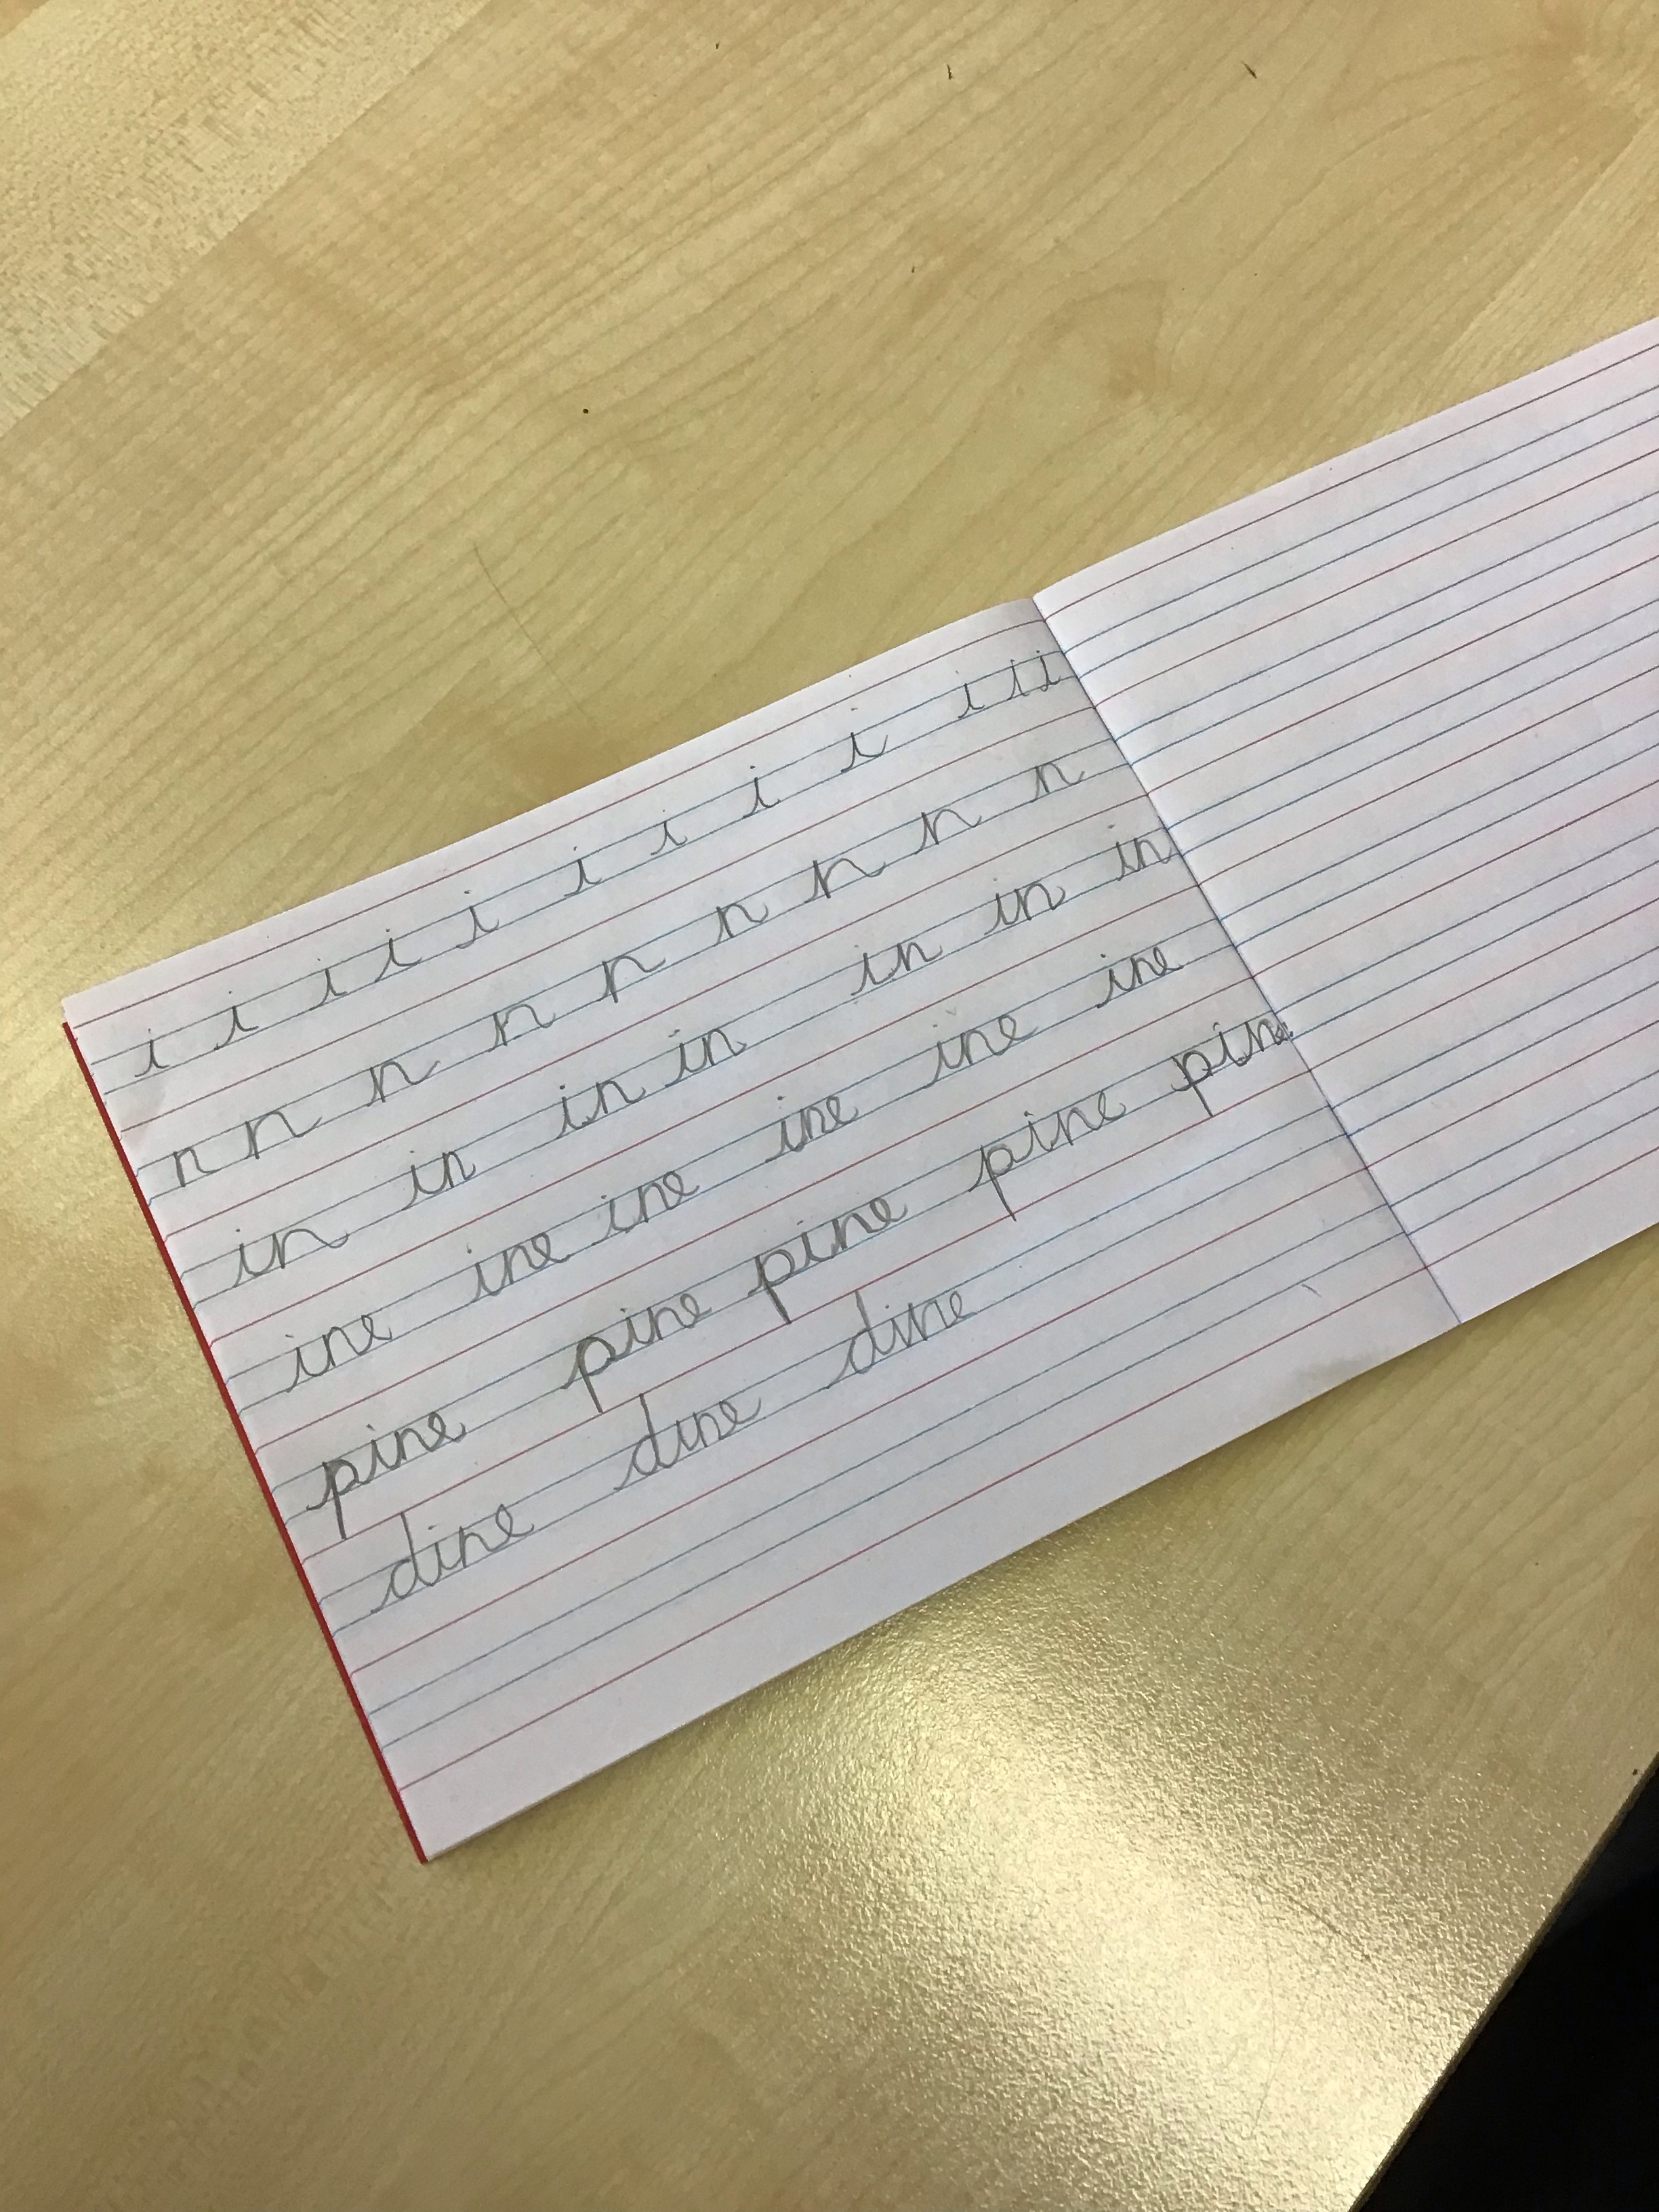 i i i i i i i i i i i i
n n n n n n n n n
in in in in in in in
ine ine ine ine ine ine
pine pine pine pine pine
dine dine dine